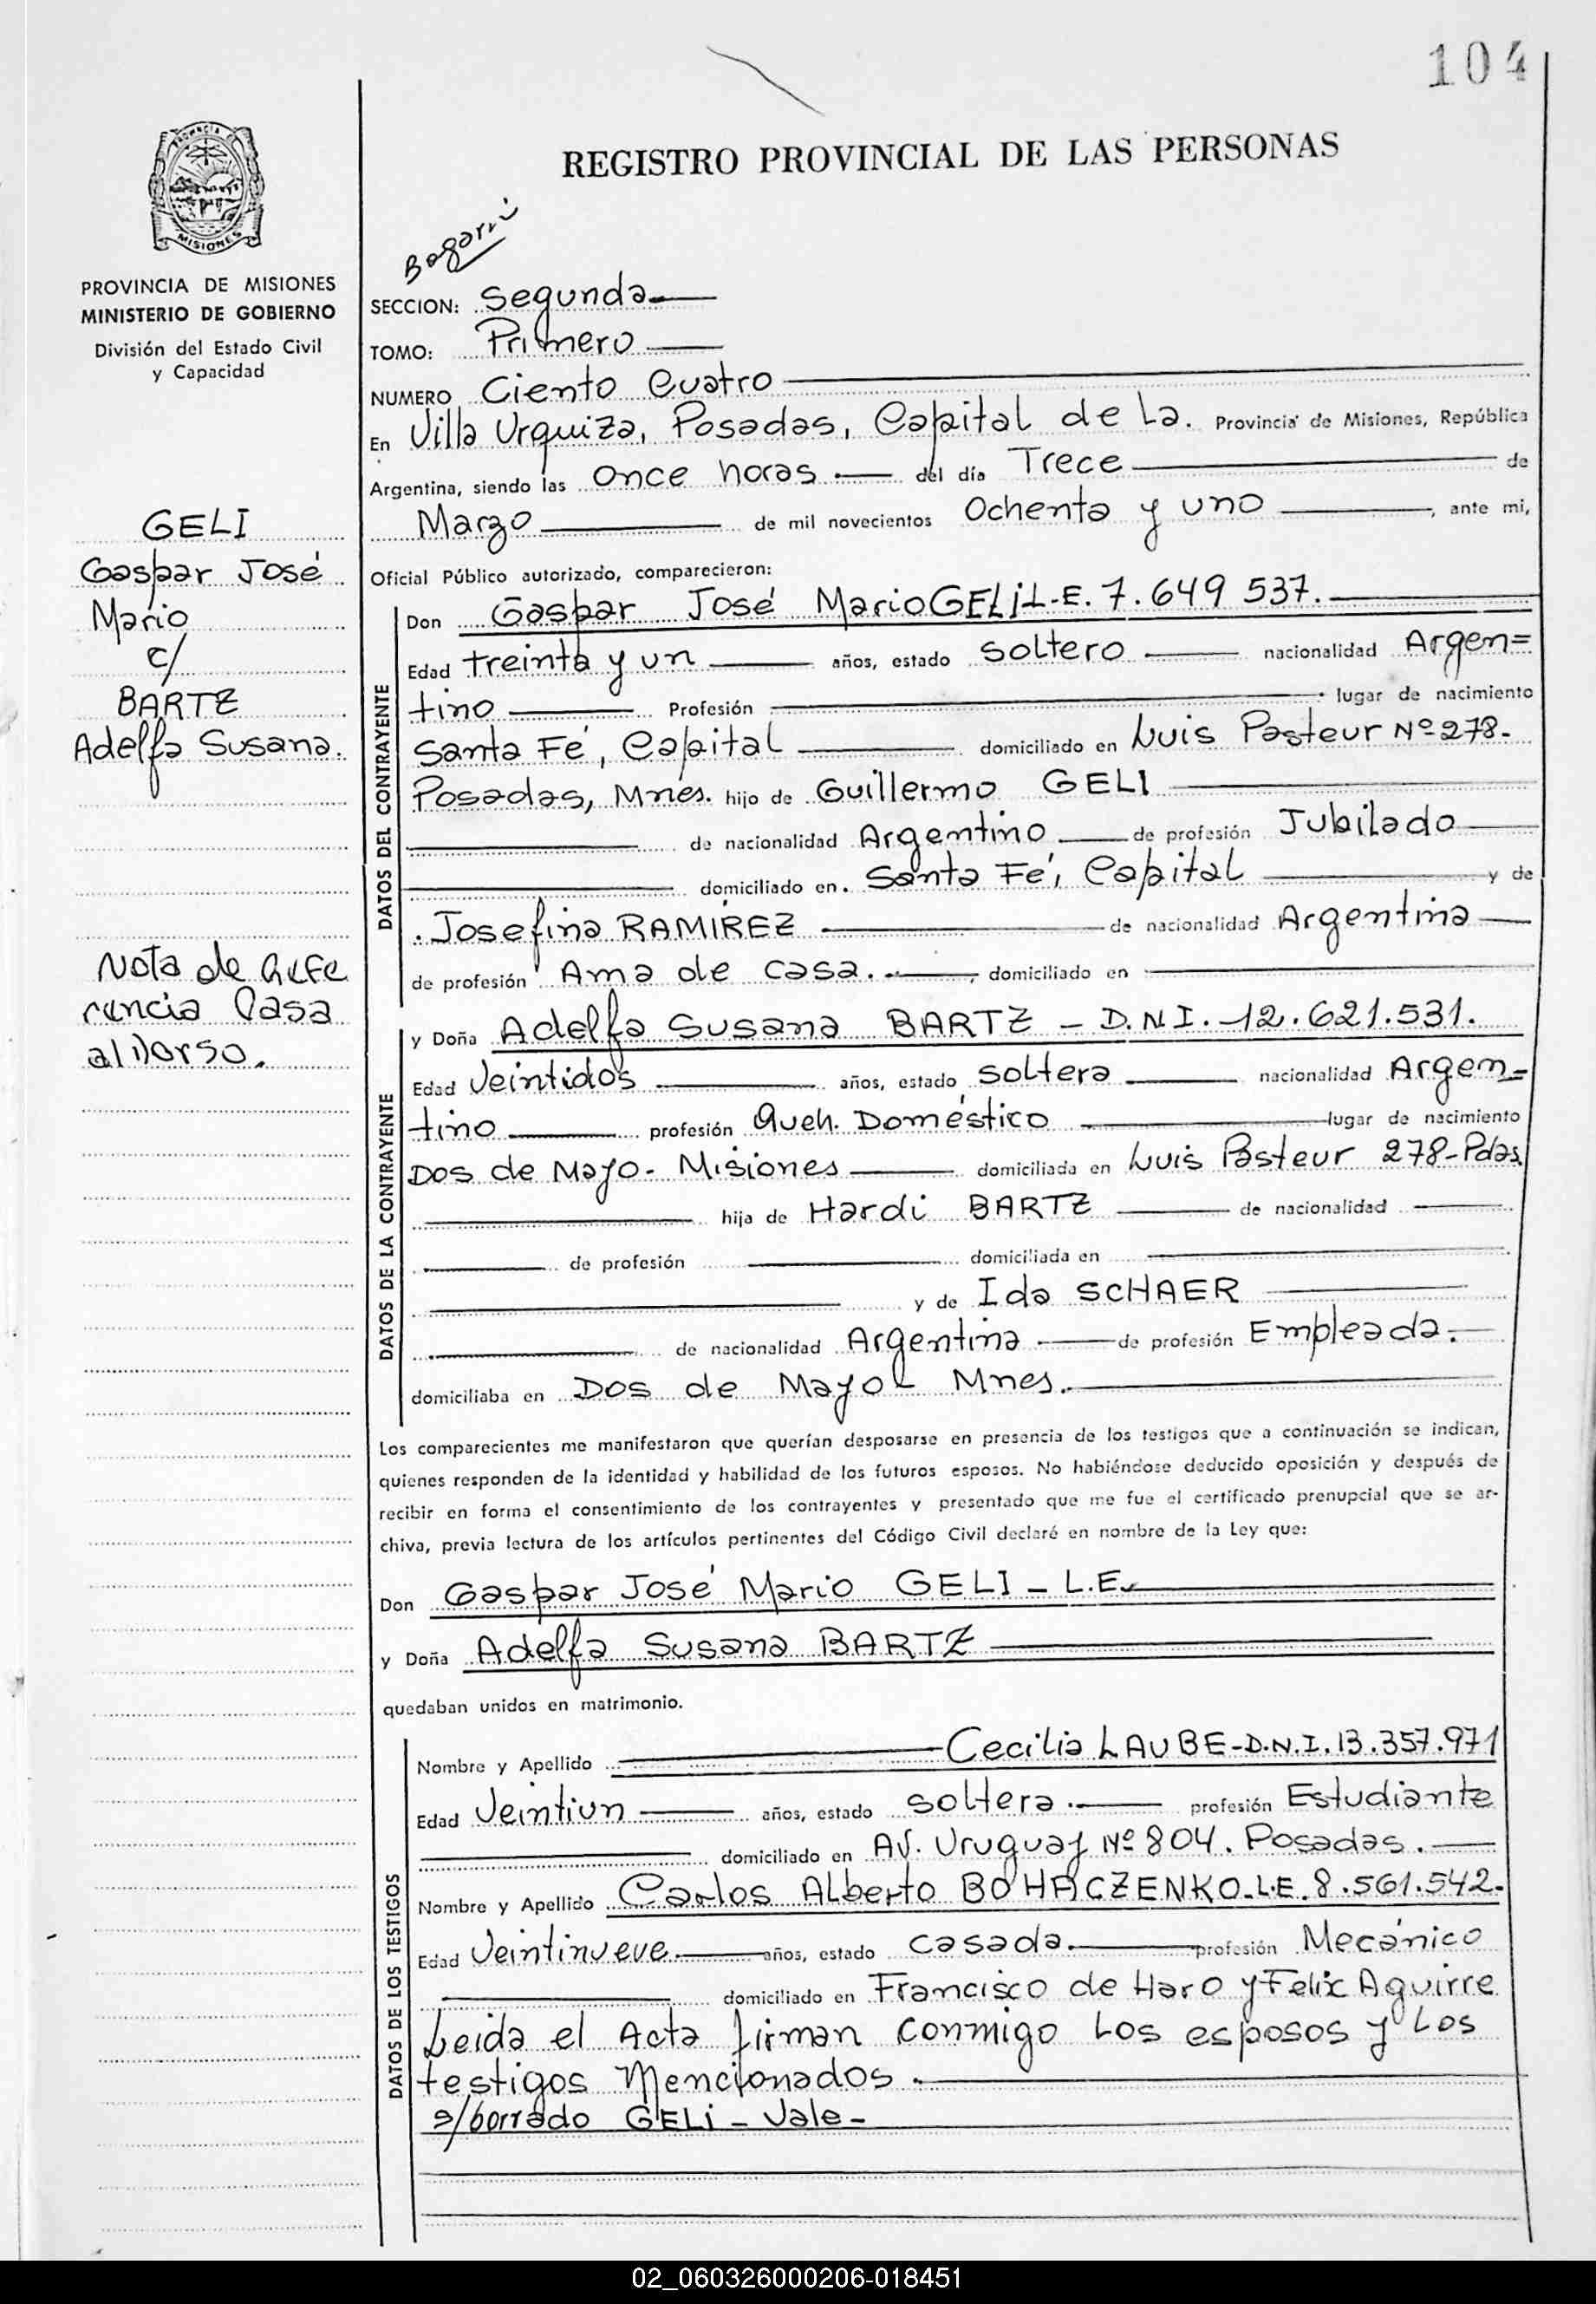 104
REGISTRO PROVINCIAL DE LAS PERSONAS
PROVINCIA DE MISIONES
MISIONES
PROVINCIA DE MISIONES
MINISTERIO DE GOBIERNO
División del Estado Civil
y Capacidad
GELI
Gaspar José
Mario
c/
BARTZ
Adelfa Susana.
Nota de Refe
rencia Pasa
al Dorso.
SECCION: Segunda
TOMO: Primero
NUMERO Ciento Cuatro
En Villa Urquiza, Posadas, Capital de La. Provincia de Misiones, República
Argentina, siendo las once horas del día Trece de
Marzo de mil novecientos Ochenta y uno, ante mi,
Oficial Público autorizado, comparecieron:
DATOS DEL CONTRAYENTE
Don Gaspar José Mario GELI L.E. 7.649 537.
Edad treinta y un años, estado soltero nacionalidad Argen=
tino Profesión lugar de nacimiento
Santa Fé, Capital domiciliado en Luis Pasteur Nº 278-
Posadas, Mnes. hijo de Guillermo GELI
de nacionalidad Argentino de profesión Jubilado
domiciliado en. Santa Fé, Capital y de
Josefina RAMIREZ de nacionalidad Argentina
de profesión Ama de casa. , domiciliado en
DATOS DE LA CONTRAYENTE
y Doña Adelfa Susana BARTZ - D.N.I. -12.621.531.
Edad Veintidos años, estado soltera nacionalidad Argen-
tino profesión Queh. Doméstico lugar de nacimiento
Dos de Mayo- Misiones domiciliada en Luis Pasteur 278-Pdas.
hija de Hardi BARTZ de nacionalidad
de profesión domiciliada en
y de Ida SCHAER
de nacionalidad Argentina de profesión Empleada.
domiciliaba en Dos de Mayo- Mnes.
Los comparecientes me manifestaron que querían desposarse en presencia de los testigos que a continuación se indican,
quienes responden de la identidad y habilidad de los futuros esposos. No habiéndose deducido oposición y después de
recibir en forma el consentimiento de los contrayentes y presentado que me fue el certificado prenupcial que se ar-
chiva, previa lectura de los artículos pertinentes del Código Civil declaré en nombre de la Ley que:
Don Gaspar José Mario GELI - L.E.
y Doña Adelfa Susana BARTZ
quedaban unidos en matrimonio.
DATOS DE LOS TESTIGOS
Nombre y Apellido Cecilia LAUBE-D.N.I. 13.357.971
Edad Veintiun años, estado soltera. profesión Estudiante
domiciliado en AV. Uruguay Nº 804. Posadas.
Nombre y Apellido Carlos Alberto BOHACZENKO-L.E. 8.561.542-
Edad Veintinueve años, estado casada. profesión Mecánico
domiciliado en Francisco de Haro y Felix Aguirre
Leida el Acta firman conmigo Los esposos y Los
testigos Mencionados.
s/borrado GELI - Vale-
02_060326000206-018451